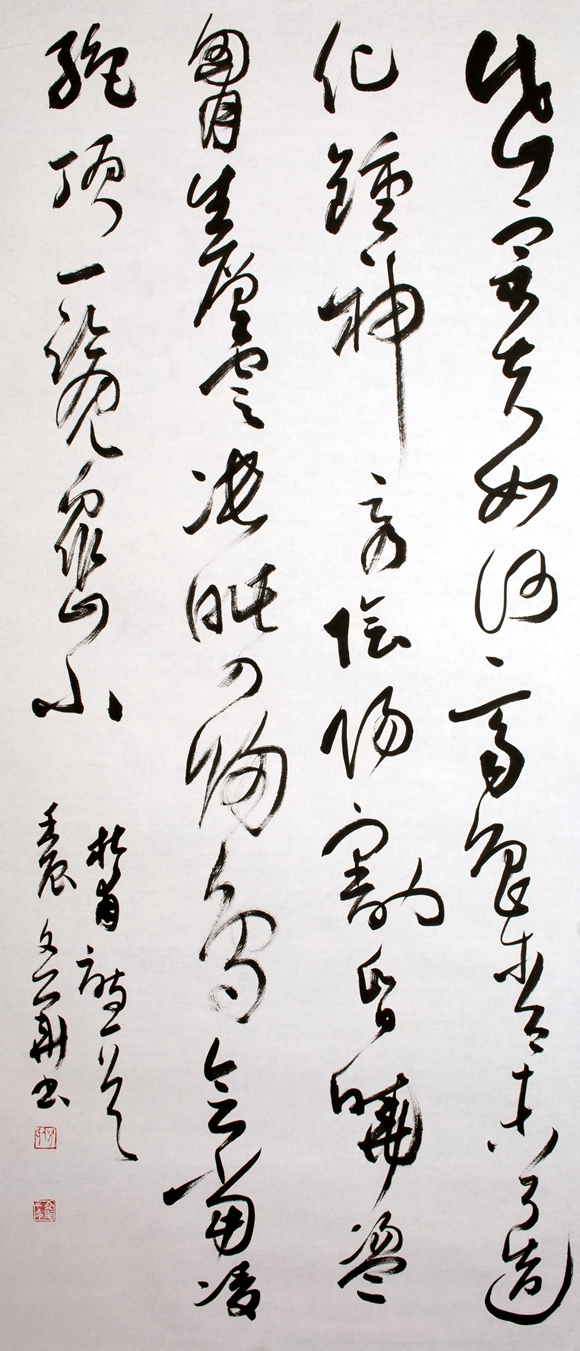 岱宗夫如何齊魯青未了造
化鍾神秀陰陽割昏曉盪
胷生層雲決眦入歸鳥會當凌
絕頂一覽眾山小
杜甫詩一首
壬辰文華書